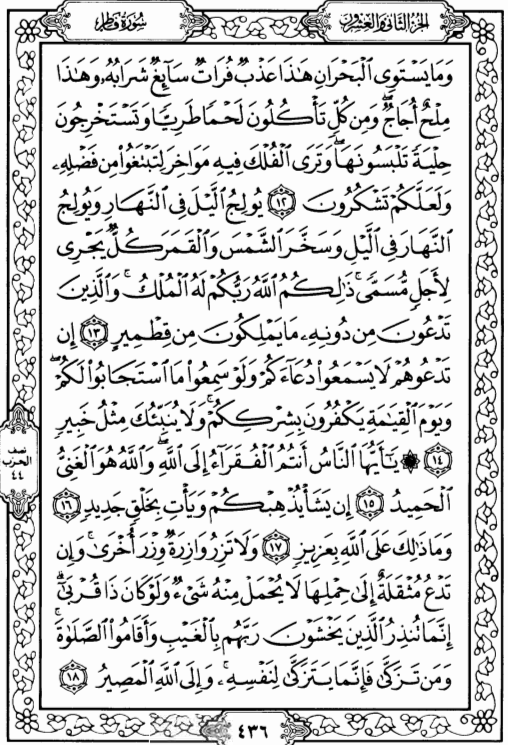 سُورَةُ فَاطِرٍ
الجُزءُ الثَّانِي وَالعِشْرُونَ
وَمَا يَسْتَوِى ٱلْبَحْرَانِ هَٰذَا عَذْبٌ فُرَاتٌ سَآئِغٌ شَرَابُهُۥ وَهَٰذَا
مِلْحٌ أُجَاجٌ ۖ وَمِن كُلٍّ تَأْكُلُونَ لَحْمًا طَرِيًّا وَتَسْتَخْرِجُونَ
حِلْيَةً تَلْبَسُونَهَا ۖ وَتَرَى ٱلْفُلْكَ فِيهِ مَوَاخِرَ لِتَبْتَغُوا۟ مِن فَضْلِهِۦ
وَلَعَلَّكُمْ تَشْكُرُونَ ١٢ يُولِجُ ٱلَّيْلَ فِى ٱلنَّهَارِ وَيُولِجُ
ٱلنَّهَارَ فِى ٱلَّيْلِ وَسَخَّرَ ٱلشَّمْسَ وَٱلْقَمَرَ كُلٌّ يَجْرِى
لِأَجَلٍ مُّسَمًّى ۚ ذَٰلِكُمُ ٱللَّهُ رَبُّكُمْ لَهُ ٱلْمُلْكُ ۚ وَٱلَّذِينَ
تَدْعُونَ مِن دُونِهِۦ مَا يَمْلِكُونَ مِن قِطْمِيرٍ ١٣ إِن
تَدْعُوهُمْ لَا يَسْمَعُوا۟ دُعَآءَكُمْ وَلَوْ سَمِعُوا۟ مَا ٱسْتَجَابُوا۟ لَكُمْ ۖ
وَيَوْمَ ٱلْقِيَٰمَةِ يَكْفُرُونَ بِشِرْكِكُمْ ۚ وَلَا يُنَبِّئُكَ مِثْلُ خَبِيرٍ
١٤ ۞ يَٰٓأَيُّهَا ٱلنَّاسُ أَنتُمُ ٱلْفُقَرَآءُ إِلَى ٱللَّهِ ۖ وَٱللَّهُ هُوَ ٱلْغَنِىُّ
ٱلْحَمِيدُ ١٥ إِن يَشَأْ يُذْهِبْكُمْ وَيَأْتِ بِخَلْقٍ جَدِيدٍ ١٦
وَمَا ذَٰلِكَ عَلَى ٱللَّهِ بِعَزِيزٍ ١٧ وَلَا تَزِرُ وَازِرَةٌ وِزْرَ أُخْرَىٰ ۚ وَإِن
تَدْعُ مُثْقَلَةٌ إِلَىٰ حِمْلِهَا لَا يُحْمَلْ مِنْهُ شَىْءٌ وَلَوْ كَانَ ذَا قُرْبَىٰٓ ۗ
إِنَّمَا تُنذِرُ ٱلَّذِينَ يَخْشَوْنَ رَبَّهُم بِٱلْغَيْبِ وَأَقَامُوا۟ ٱلصَّلَوٰةَ ۚ
وَمَن تَزَكَّىٰ فَإِنَّمَا يَتَزَكَّىٰ لِنَفْسِهِۦ ۚ وَإِلَى ٱللَّهِ ٱلْمَصِيرُ ١٨
نصف
الحزب
٤٤
٤٣٦